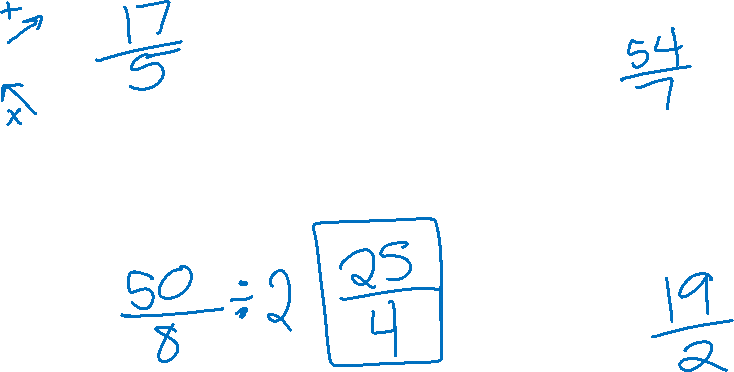 + 17/5
x
54/7
50/8 ÷ 2 25/4
19/2